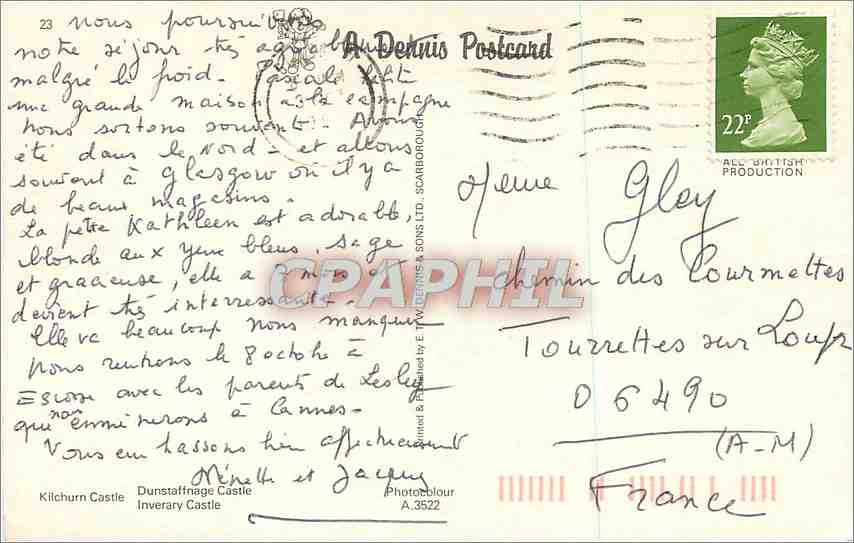 23 nous poursuivons
notre séjour très agréablement
malgré le froid - Pascale habite
une grande maison à la campagne
nous sortons souvent - Avons
été dans le Nord - et allons
souvent à Glasgow où il y a
de beaux magasins.
La petite Kathleen est adorable,
blonde aux yeux bleus, sage
et gracieuse, elle a 7 mois et
devient très interressante -
Elle va beaucoup nous manquer
nous rentrons le 8 octobre à
avec les parents de Lesley
que nous emmènerons à Cannes -
Vous embrassons bien affectueusement
Ninette et Jacques
A Dennis Postcard
22P
ALL BRITISH
PRODUCTION
Mme Gley
chemin des Courmettes
Tourrettes sur Loup
06490
(A-M)
France
Printed & Published by E. T. W. DENNIS & SONS LTD., SCARBOROUGH
CPAPHIL
Kilchurn Castle
Dunstaffnage Castle
Inverary Castle
Photocolour
A.3522